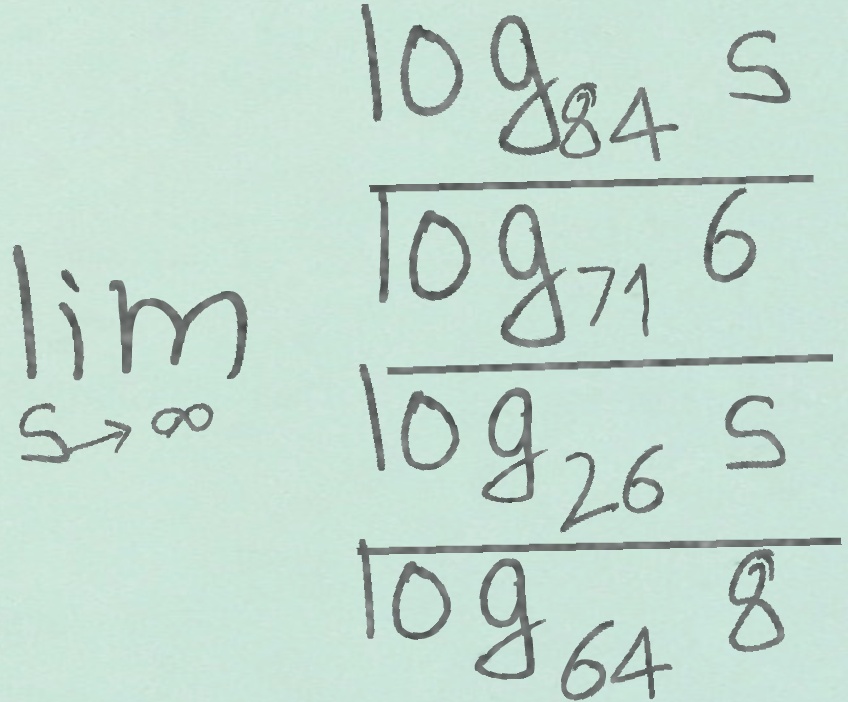 \lim_{s \to \infty} \frac{\frac{\log_{84} s}{\log_{71} 6}}{\frac{\log_{26} s}{\log_{64} 8}}